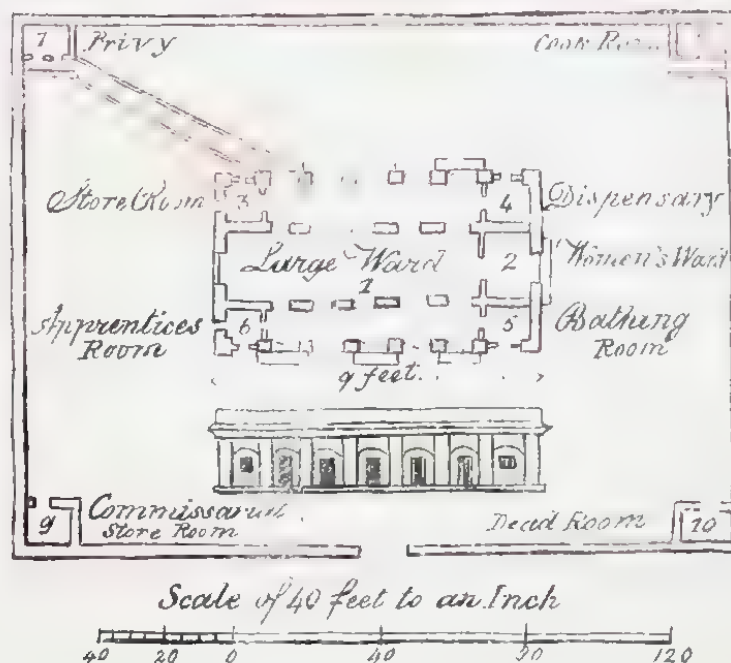 7 Privy
Cook Room
Store Room 3
4 Dispensary
Large Ward
1
2 Women's Ward
Apprentices
Room
6
5 Bathing
Room
9 feet.
9 Commissariat
Store Room
Dead Room 10
Scale of 40 feet to an Inch
40 20 0 40 80 120